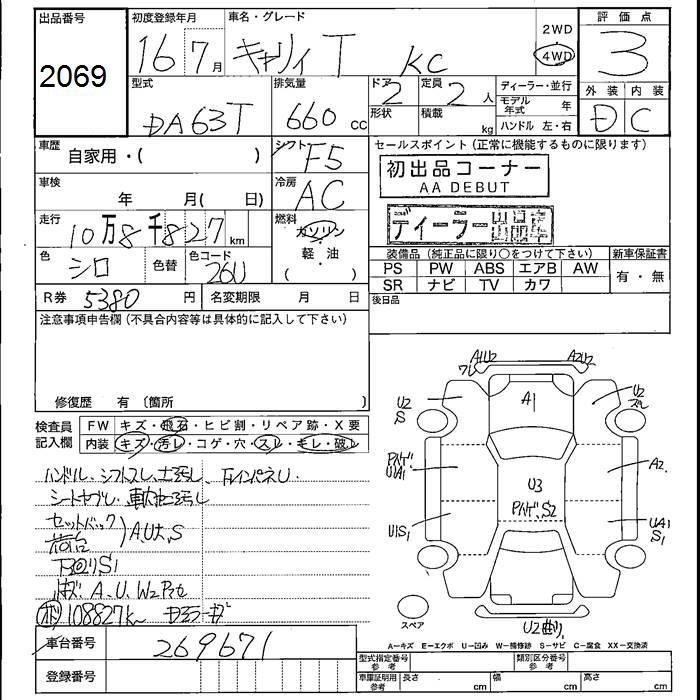 出品番号
2069
初度登録年月
16 7月
車名・グレード
キャリィ T KC
2WD
4WD
評価点
3
型式
DA63T
排気量
660 cc
ドア
2
形状
定員
2人
積載
kg
ディーラー・並行
モデル年式 年
ハンドル 左・右
外装 内装
D C
車歴
自家用・( )
シフト
F5
セールスポイント(正常に機能するものに限ります)
初出品コーナー
AA DEBUT
ディーラー出品車
車検
年 月( 日)
冷房
AC
走行
10万8千827km
燃料
ガソリン
軽・油
( )
色
シロ
色替
色コード
26U
装備品(純正品に限り○をつけて下さい)
PS PW ABS エアB AW
SR ナビ TV カワ
新車保証書
有・無
R券 5380 円
名変期限 月 日
後日品
注意事項申告欄(不具合内容等は具体的に記入して下さい)
修復歴 有〔箇所 〕
検査員記入欄
FW キズ・飛石・ヒビ割・リペア跡・X要
内装 キズ・汚レ・コゲ・穴・スレ・キレ・破レ
ハンドル、シフトスレ、
シート
セットバック
荷台
A.U大.S
A.U.W2
108827k
車台番号
269671
登録番号
A1U2
A2U2
U2
S
A1
U2
U1A1
A2
U3
S2
U1S1
UA1
S1
スペア
U2曲り
A=キズ E=エクボ U=凹み W=補修跡 S=サビ C=腐食 XX=交換済
型式指定番号
参考
類別区分番号
参考
車庫証明用
参考
長さ cm
幅 cm
高さ cm